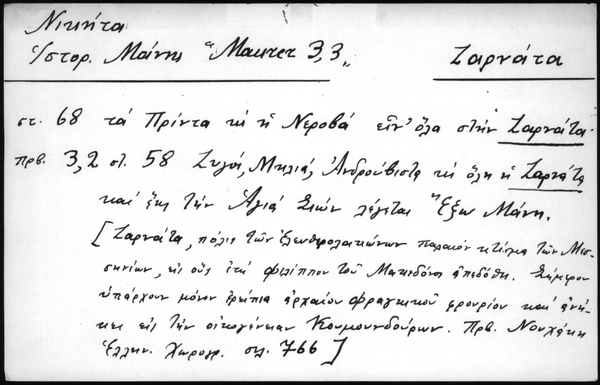 Νικήτα
Ἱστορ. Μάνης "Maurer 3,3„ Ζαρνάτα
στ. 68 τά Πρίντα κι ἡ Νεροβά εἶν' ὅλα στήν Ζαρνάτα.
πρβ. 3,2 στ. 58 Ζυγό, Μηλιά, Ἀνδρούβιστα κι ὅλη ἡ Ζαρνάτα
καί ἕως τήν Ἁγιά Σιών λέγεται "Ἔξω Μάνη.
[Ζαρνάτα, πόλις τῶν Ἐλευθερολακώνων παλαιόν κτίσμα τῶν Μεσ-
σηνίων, εἰς οὕς ἐπί Φιλίππου τοῦ Μακεδόνος ἀπεδόθη. Σήμερον
ὑπάρχουν μόνον ἐρείπια ἀρχαίου φραγκικοῦ φρουρίου καί ἀνή-
κει εἰς τήν οἰκογένειαν Κουμουνδούρων. Πρβ. Νουχάκη
Ἑλλην. Χωρογρ. σελ. 766]